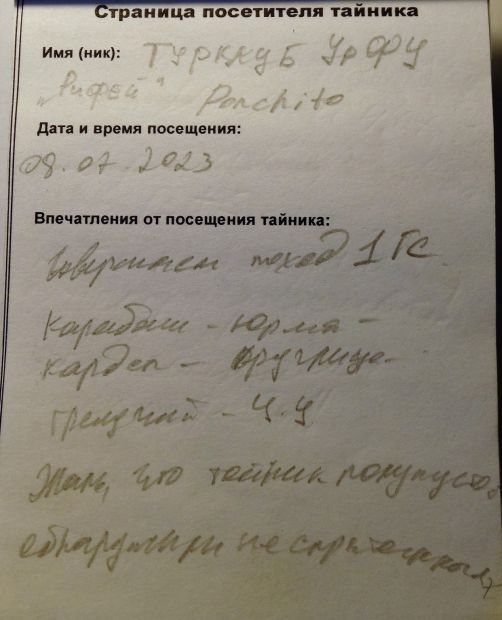 Страница посетителя тайника
Имя (ник): ТУРКЛУБ УрФУ
„Рифей" Ponchito
Дата и время посещения:
08.07.2023
Впечатления от посещения тайника:
Совершаем поход 1 ГС
Карабаш - Юрма -
- Круглица -
Гремучий - Ч.У
Жаль, что тайник полупустой
обнаружили не спрятанным